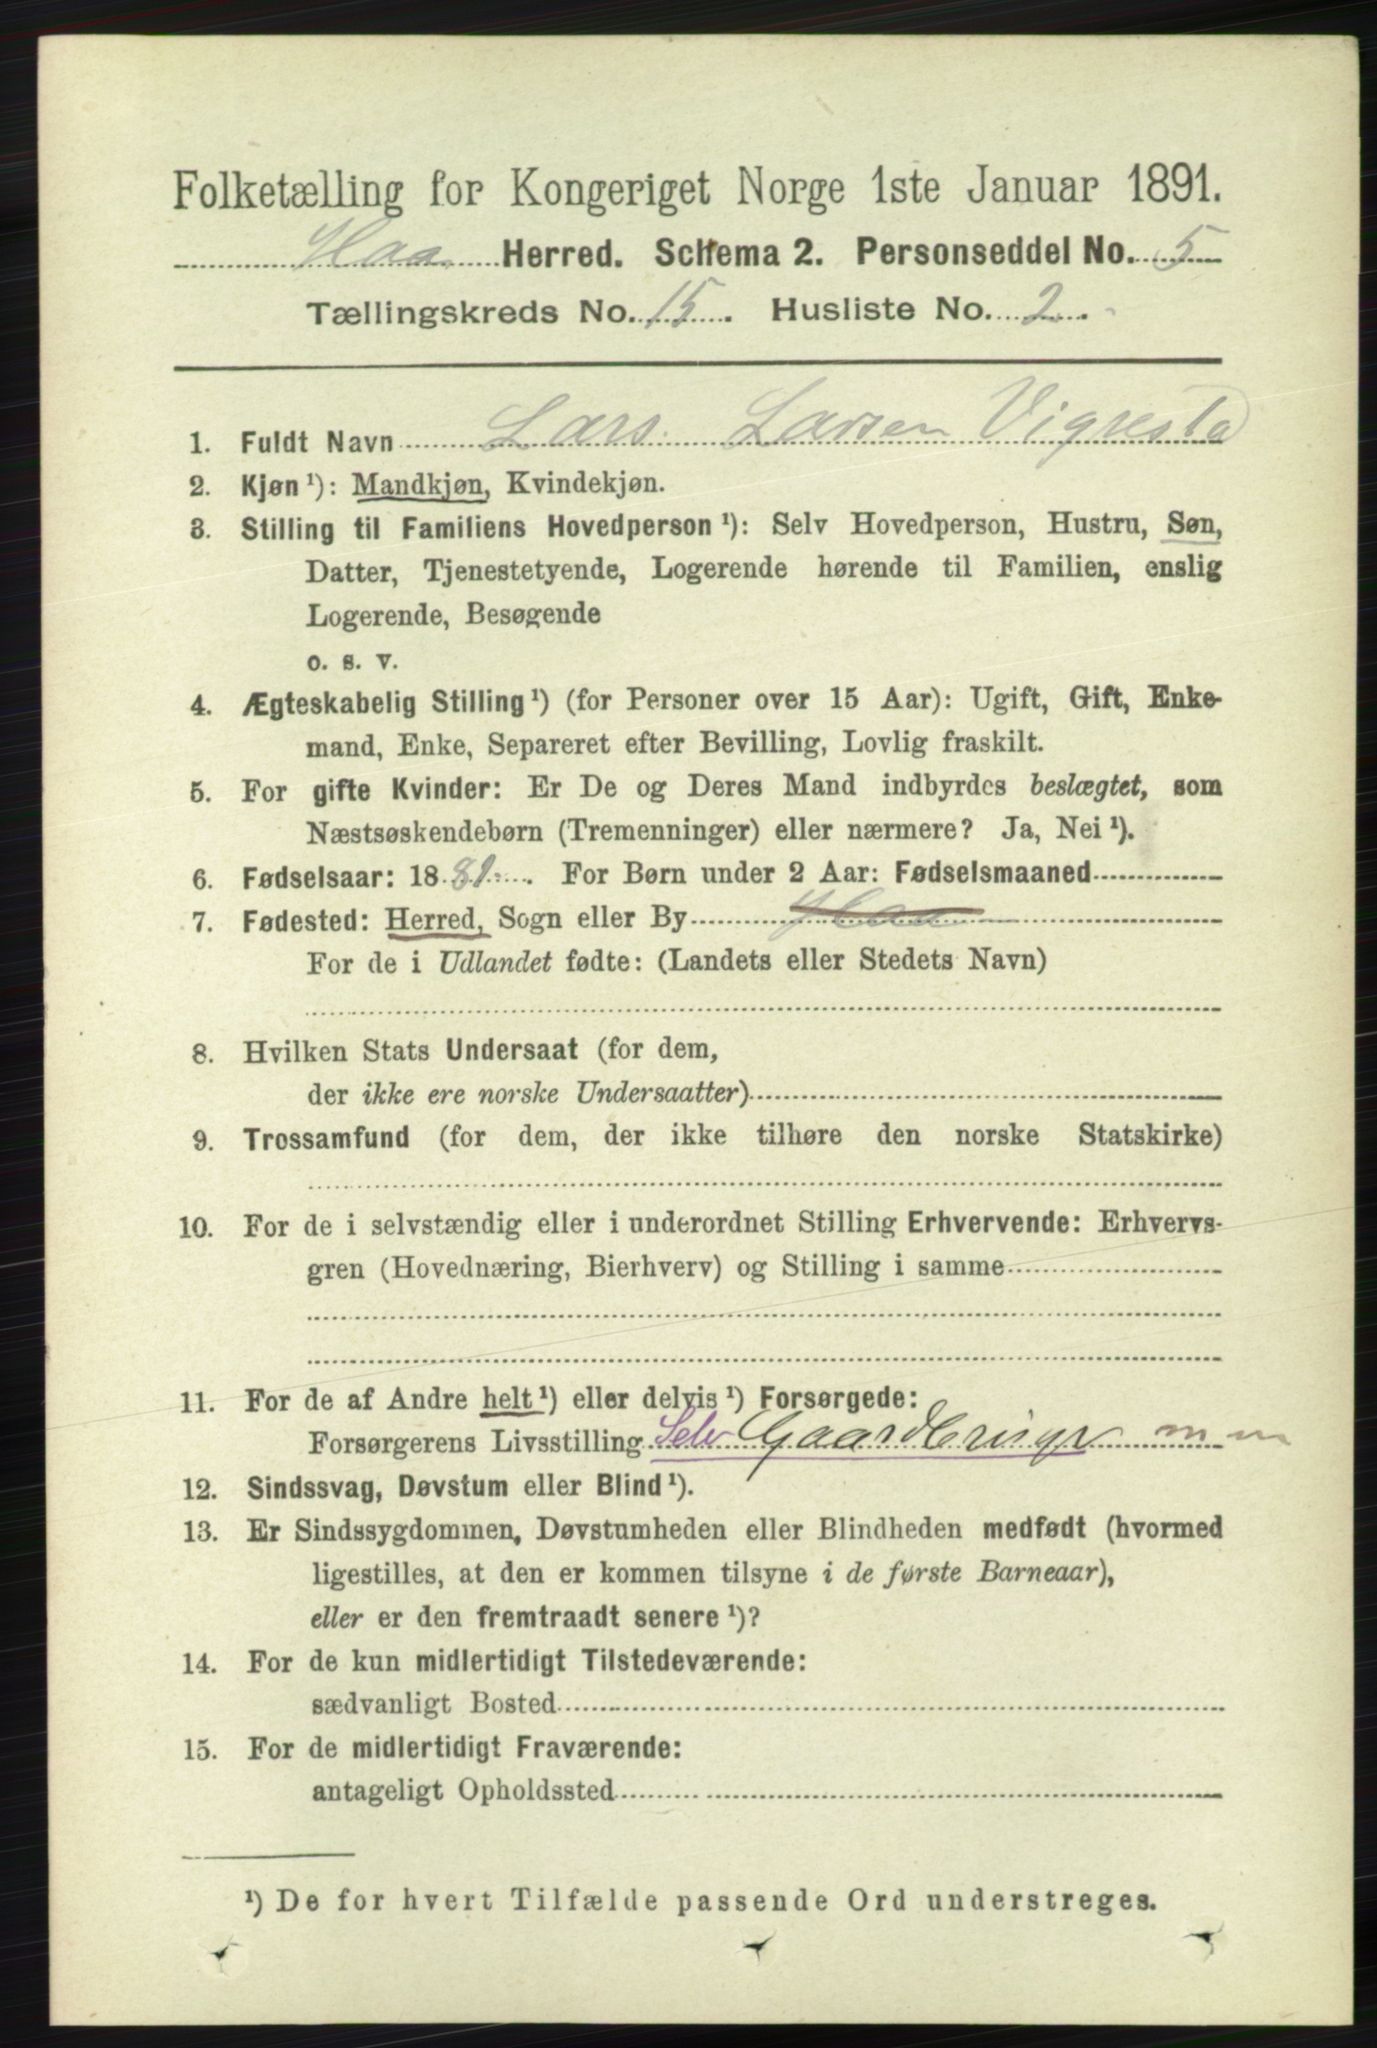 Folketælling for Kongeriget Norge 1ste Januar 1891.
Haa Herred. Schema 2. Personseddel No. 5
Tællingskreds No. 15. Husliste No. 2.
1. Fuldt Navn Lars Larsen Vigrestad
2. Kjøn ¹): Mandkjøn, Kvindekjøn.
3. Stilling til Familiens Hovedperson ¹): Selv Hovedperson, Hustru, Søn,
Datter, Tjenestetyende, Logerende hørende til Familien, enslig
Logerende, Besøgende
o. s. v.
4. Ægteskabelig Stilling ¹) (for Personer over 15 Aar): Ugift, Gift, Enke-
mand, Enke, Separeret efter Bevilling, Lovlig fraskilt.
5. For gifte Kvinder: Er De og Deres Mand indbyrdes beslægtet, som
Næstsøskendebørn (Tremenninger) eller nærmere? Ja, Nei ¹).
6. Fødselsaar: 1881. For Børn under 2 Aar: Fødselsmaaned
7. Fødested: Herred, Sogn eller By Haa
For de i Udlandet fødte: (Landets eller Stedets Navn)
8. Hvilken Stats Undersaat (for dem,
der ikke ere norske Undersaatter)
9. Trossamfund (for dem, der ikke tilhøre den norske Statskirke)
10. For de i selvstændig eller i underordnet Stilling Erhvervende: Erhvervs-
gren (Hovednæring, Bierhverv) og Stilling i samme
11. For de af Andre helt ¹) eller delvis ¹) Forsørgede:
Forsørgerens Livsstilling Selv Gaardbruger m m
12. Sindssvag, Døvstum eller Blind ¹).
13. Er Sindssygdommen, Døvstumheden eller Blindheden medfødt (hvormed
ligestilles, at den er kommen tilsyne i de første Barneaar),
eller er den fremtraadt senere ¹)?
14. For de kun midlertidigt Tilstedeværende:
sædvanligt Bosted
15. For de midlertidigt Fraværende:
antageligt Opholdssted
¹) De for hvert Tilfælde passende Ord understreges.